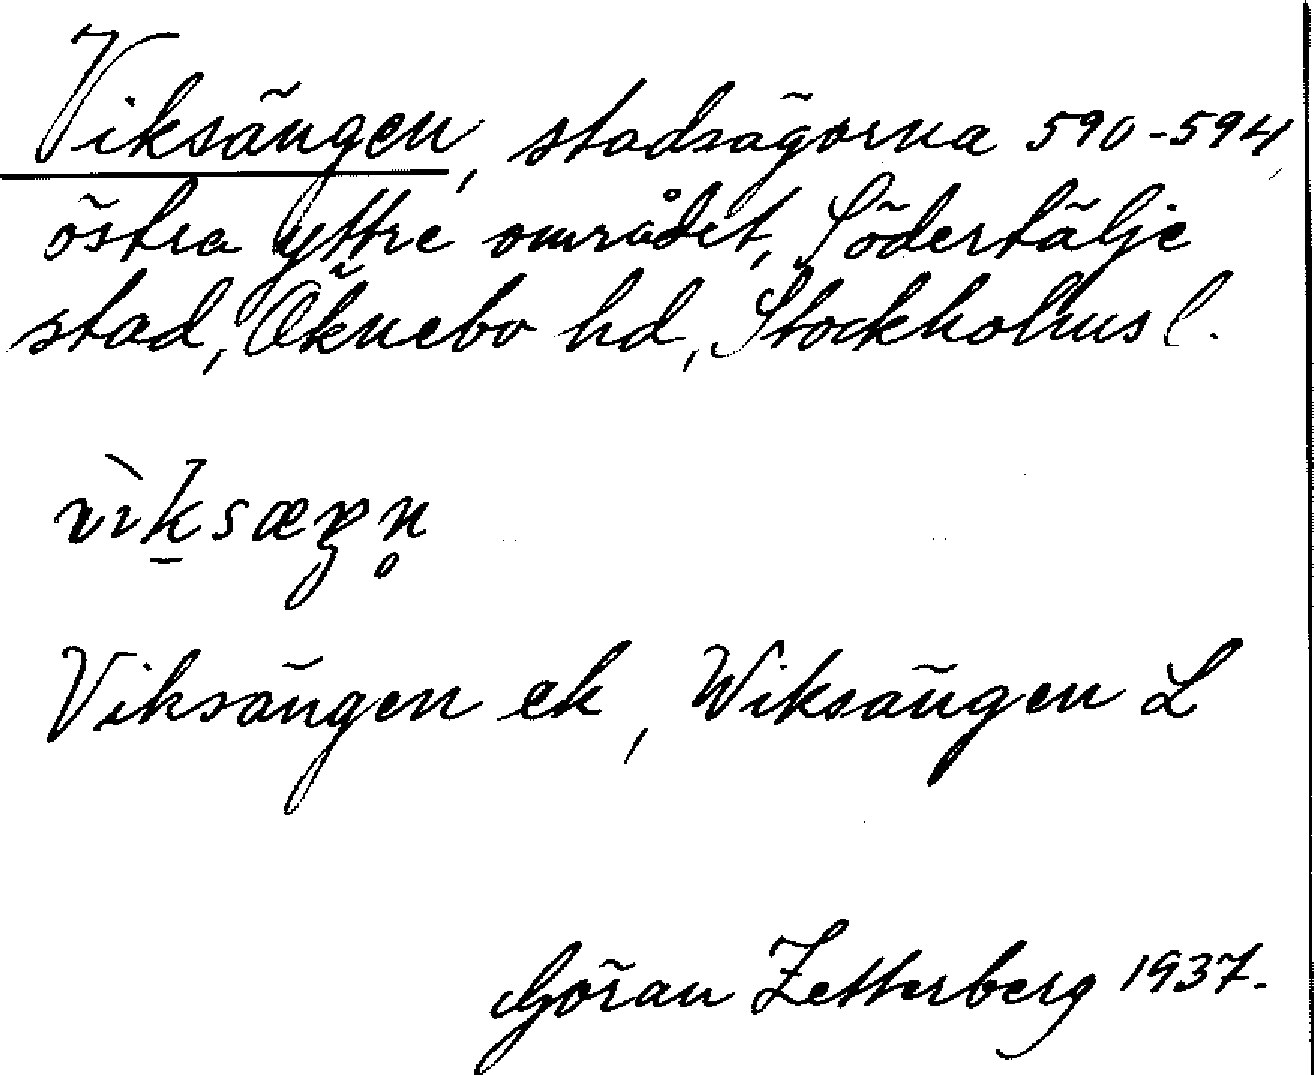 Viksängen, stadsägorna 590-594,
östra yttre området, Södertälje
stad, Öknebo hd, Stockholms l.
vìk̠sæŋn̥
Viksängen ek, Wiksängen L
Göran Zetterberg 1937.